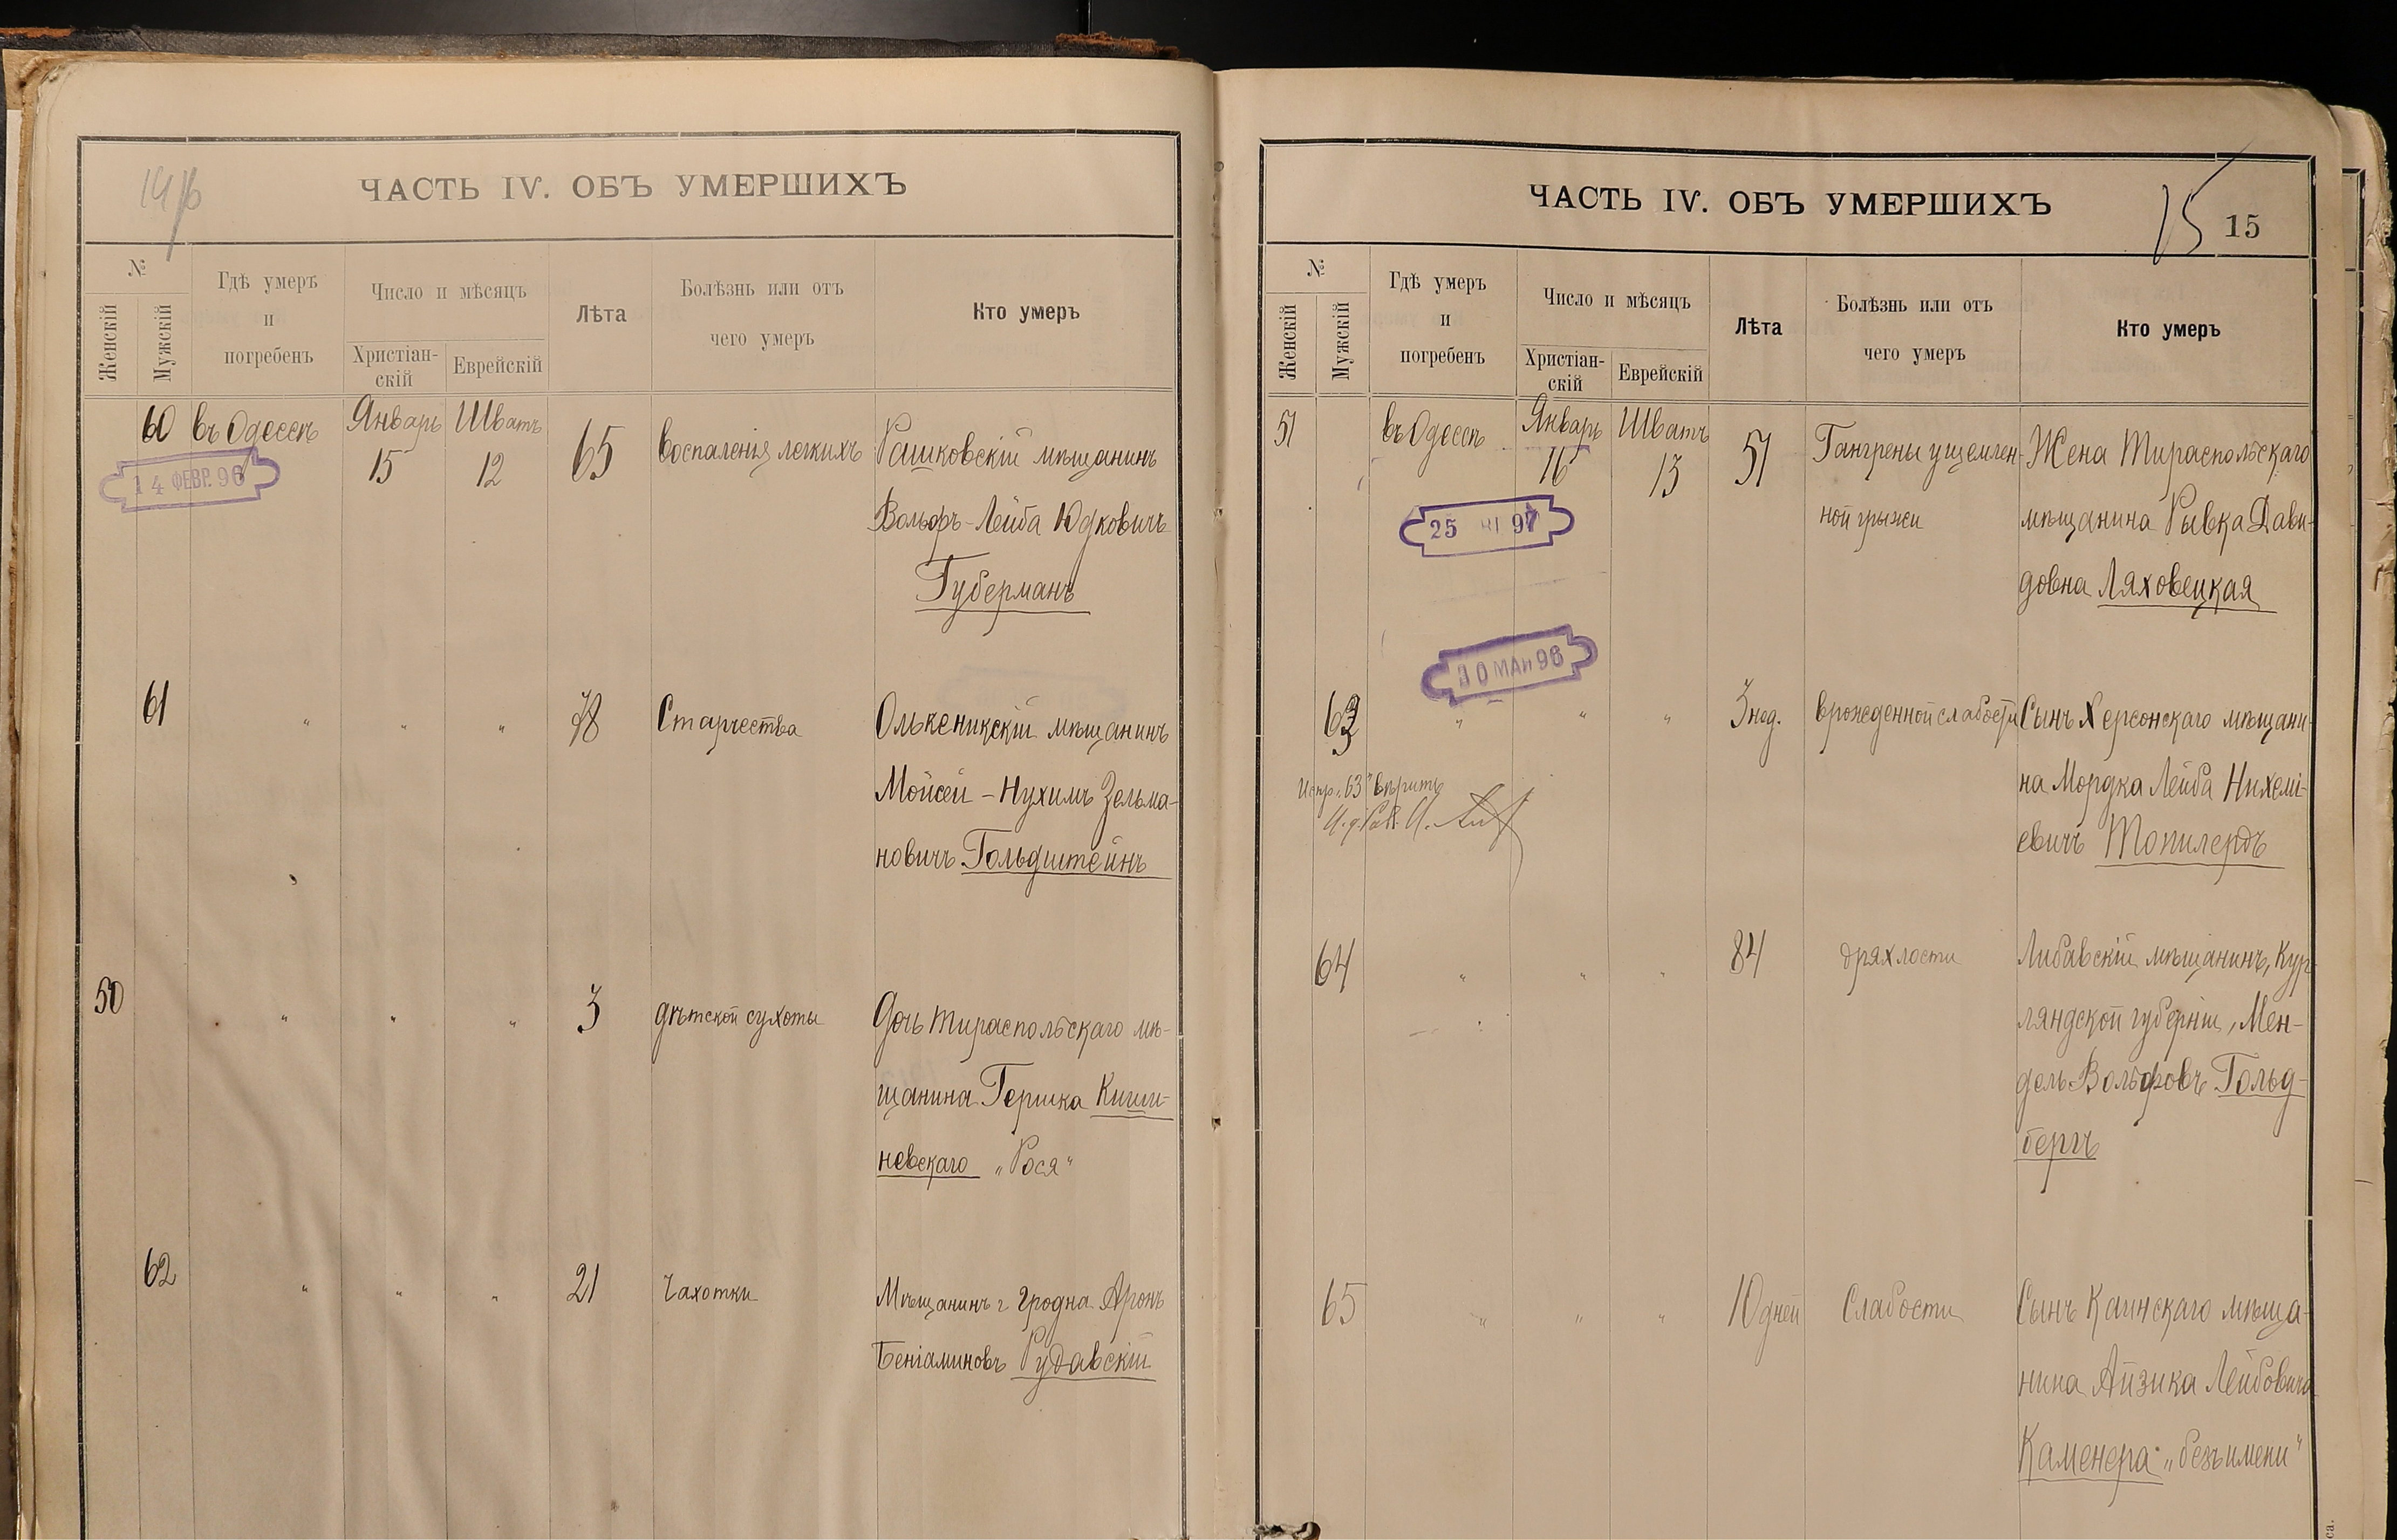 ЧАСТЬ IV. ОБЪ УМЕРШИХЪ
№
Женскій
Мужскій
Гдѣ умеръ
и
погребенъ
Число и мѣсяцъ
Христіан-
скій
Еврейскій
Лѣта
Болѣзнь или отъ
чего умеръ
Кто умеръ
60 въ Одессѣ Январь Шватъ 65 воспаленія легкихъ Рашковскій мѣщанинъ
15 12
14 ФЕВР. 96
Вольфъ-Лейба Юдковичъ
Губерманъ
61 " " " 78 Старчества Олькеникскій мѣщанинъ
Мойсей-Нухимъ Зельма-
новичъ Гольдштейнъ
50 " " " 3 дѣтской сухоты Дочь Тираспольскаго мѣ-
щанина Гершка Киши-
невскаго „Рося“
62 " " " 21 Чахотки Мѣщанинъ г Гродна Аронъ
Беніаминовъ Рудавскій
ЧАСТЬ IV. ОБЪ УМЕРШИХЪ
15 15
№
Женскій
Мужскій
Гдѣ умеръ
и
погребенъ
Число и мѣсяцъ
Христіан-
скій
Еврейскій
Лѣта
Болѣзнь или отъ
чего умеръ
Кто умеръ
51 въ Одессѣ Январь Шватъ 51 Гангрены ущемлен- Жена Тираспольскаго
16 13
25 97
ной грыжи мѣщанина Рывка Дави-
довна Ляховецкая
63 " " " 3 нед. врожденной слабости Сынъ Херсонскаго мѣщани-
на Мордка Лейба Нихелі-
евичъ
Испр. „63“ вѣрить
64 " " " 84 дряхлости Либавскій мѣщанинъ, Кур-
ляндской губерніи, Мен-
дель Вольфовъ Гольд-
бергъ
65 " " " 10 дней Слабости Сынъ Каинскаго мѣща-
нина Айзика Лейбовича
Каменера „безъ имени“